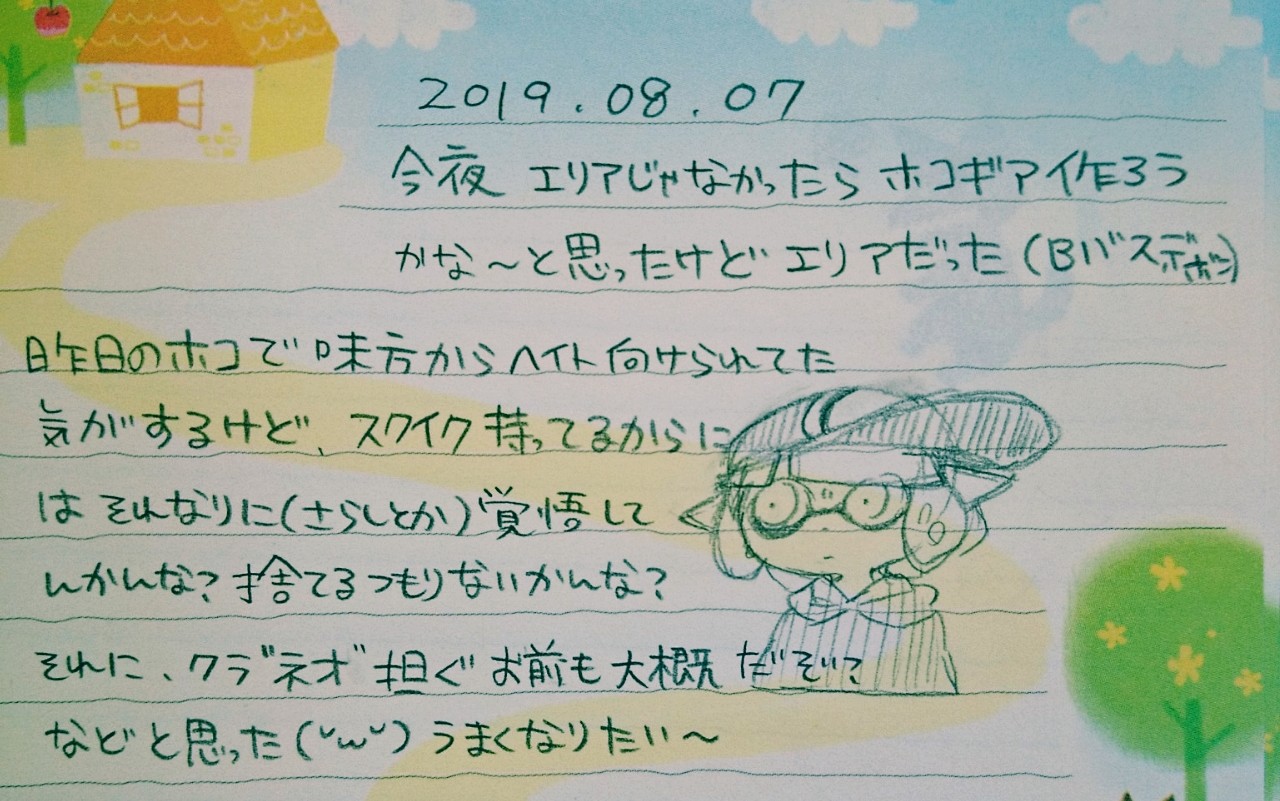 2019.08.07
今夜 エリアじゃなかったら ホコギア作ろう
かな〜と思ったけど エリアだった(Bバスデボン)
昨日のホコで味方からヘイト向けられてた
気がするけど、スクイク持ってるからに
は それなりに(さらしとか)覚悟して
んかんな?捨てるつもりないかんな?
それに、クラ"ネオ"担ぐお前も大概だぞい?
などと思った(˘ω˘)うまくなりたい〜